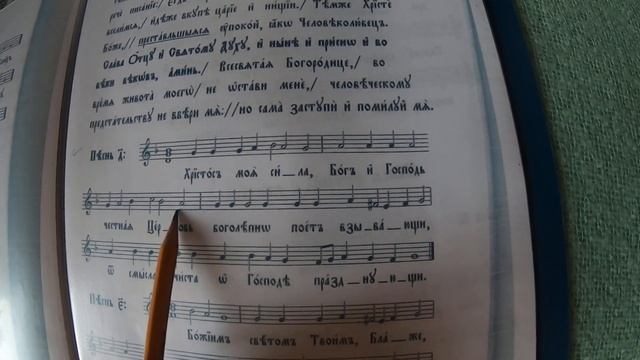 вселимсѧ,/ идѣже вкупѣ царїе и нищїи./ Тѣмже Христе
Боже,// преставльшыѧсѧ упокой, ꙗкѡ Человѣколюбецъ.
Слава Отцу и Святому Духу, и нынѣ и приснѡ и во
вѣки вѣкѡвъ, аминь./ Всесвѧтаѧ Богородице,/ во
времѧ живота моегѡ/ не ѡстави мене,/ человѣческому
предстательству не ввѣри мѧ:// но сама заступи и помилуй мѧ.
Пѣснь д҃:
Христосъ моѧ си_ла, Богъ и Господь
честнаѧ Цер_ковь боголѣпнѡ поетъ взы_ва_ющи,
ѿ смысла чиста ѡ Господѣ празд_ну_ю_щи.
Пѣснь є҃:
Божїимъ свѣтомъ Твоимъ, Бла_же,